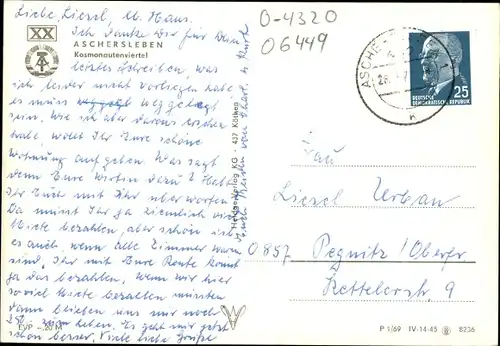 Liebe Liesel, u. Hans.
Ich danke Dir für Dein
XX
ASCHERSLEBEN
Kosmonautenviertel
letztes Schreiben, was
ich leider nicht vorliegen habe,
es muss weggelegt
sein. Wie ich aber daraus ersehen
habe, wollt Ihr Eure schöne
Wohnung aufgeben. Was sagt
denn Eure Wirtin dazu? Habt
Ihr Euch mit Ihr überworfen
Da müsst Ihr ja ziemlich viel
Miete bezahlen, aber schön ist
es auch, wenn alle Zimmer warm
sind. Ihr mit Eure Rente könnt
ja das bezahlen, wenn wir hier
so viel Miete bezahlen müssten
dann blieben uns nur noch
250 zum leben. Es geht mir jetzt
schon besser. Viele liebe Grüße
EVP -,20 M
Verlag KG · 437 Köthen
O-4320
06449
ASCHE
DEUTSCHE
DEMOKRATISCHE REPUBLIK
25
Frau
Liesel Urban
0857 Pegnitz/Oberfr
Kettelerstr. 9
P 1/69 IV-14-45 8236